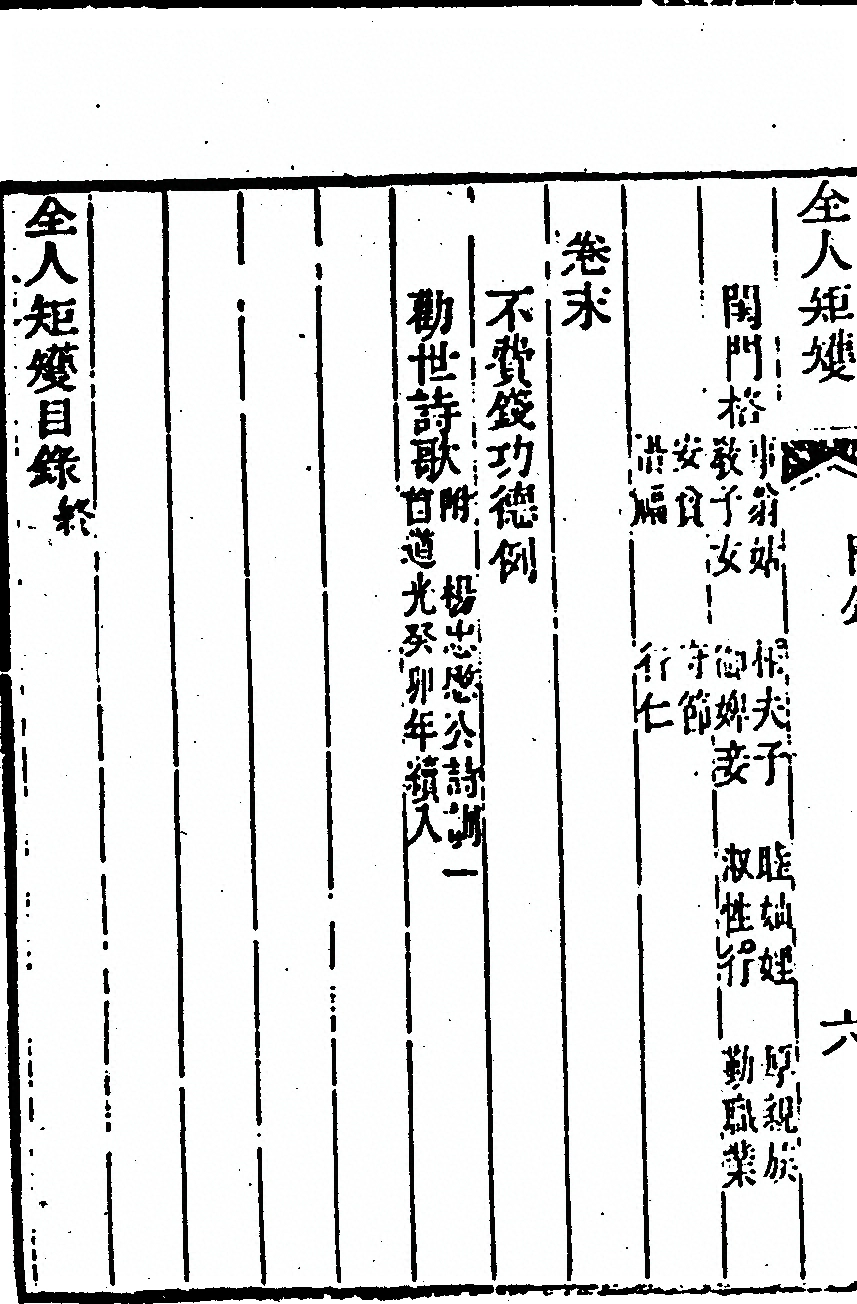 全人矩矱
目錄
六
閨門格
事翁姑 相夫子 睦妯娌 厚親族
敬子女 御婢妾 淑性行 勤職業
安貧 守節
惜福 行仁
卷末
不費錢功德例
勸世詩歌
附 楊忠愍公詩訓一
首道光癸卯年續入
全人矩矱目錄終